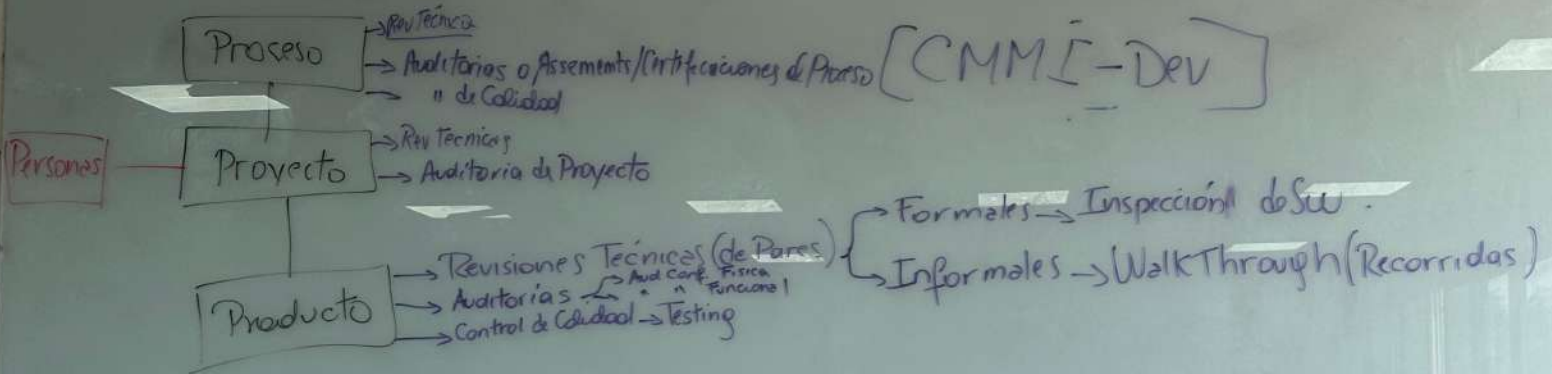 Proceso
→ Rev Técnica
→ Auditorias o Assements/Certificaciones d Proceso [CMMI-Dev]
→ " de Calidad
Personas
Proyecto
→ Rev Tecnicas
→ Auditoria de Proyecto
Producto
→ Revisiones Técnicas (de Pares)
→ Formales → Inspección de Sw.
→ Informales → WalkThrough (Recorridas)
→ Auditorías → Aud Conf. Física
→ " " Funcional
→ Control de Calidad → Testing